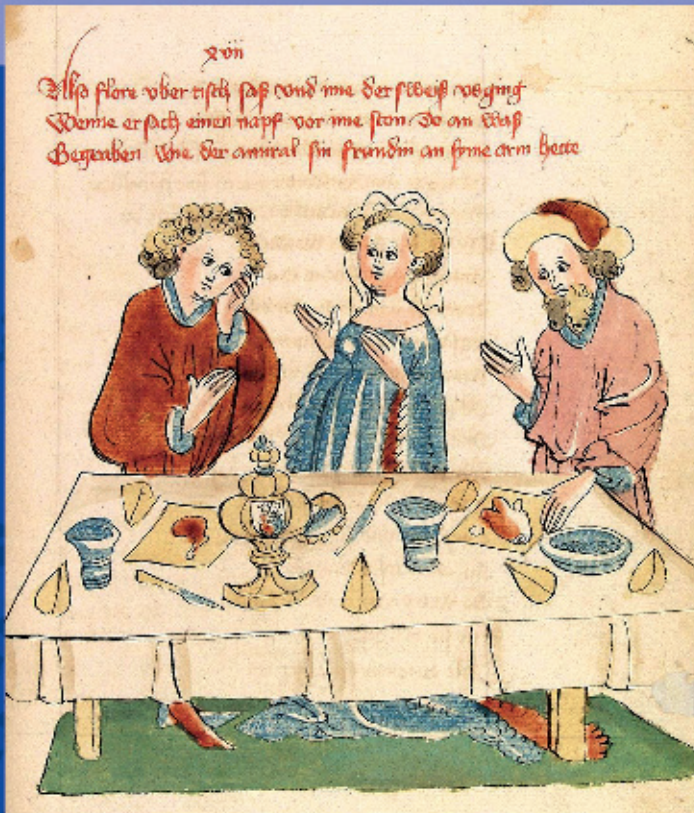 xvii
Also flore vber tisch saß vnd ime der sweiß vsging
Wenne er sach einen napf vor ime ston Do an waß
Gegraben Wie der amiral sin frundin an sime arm hette